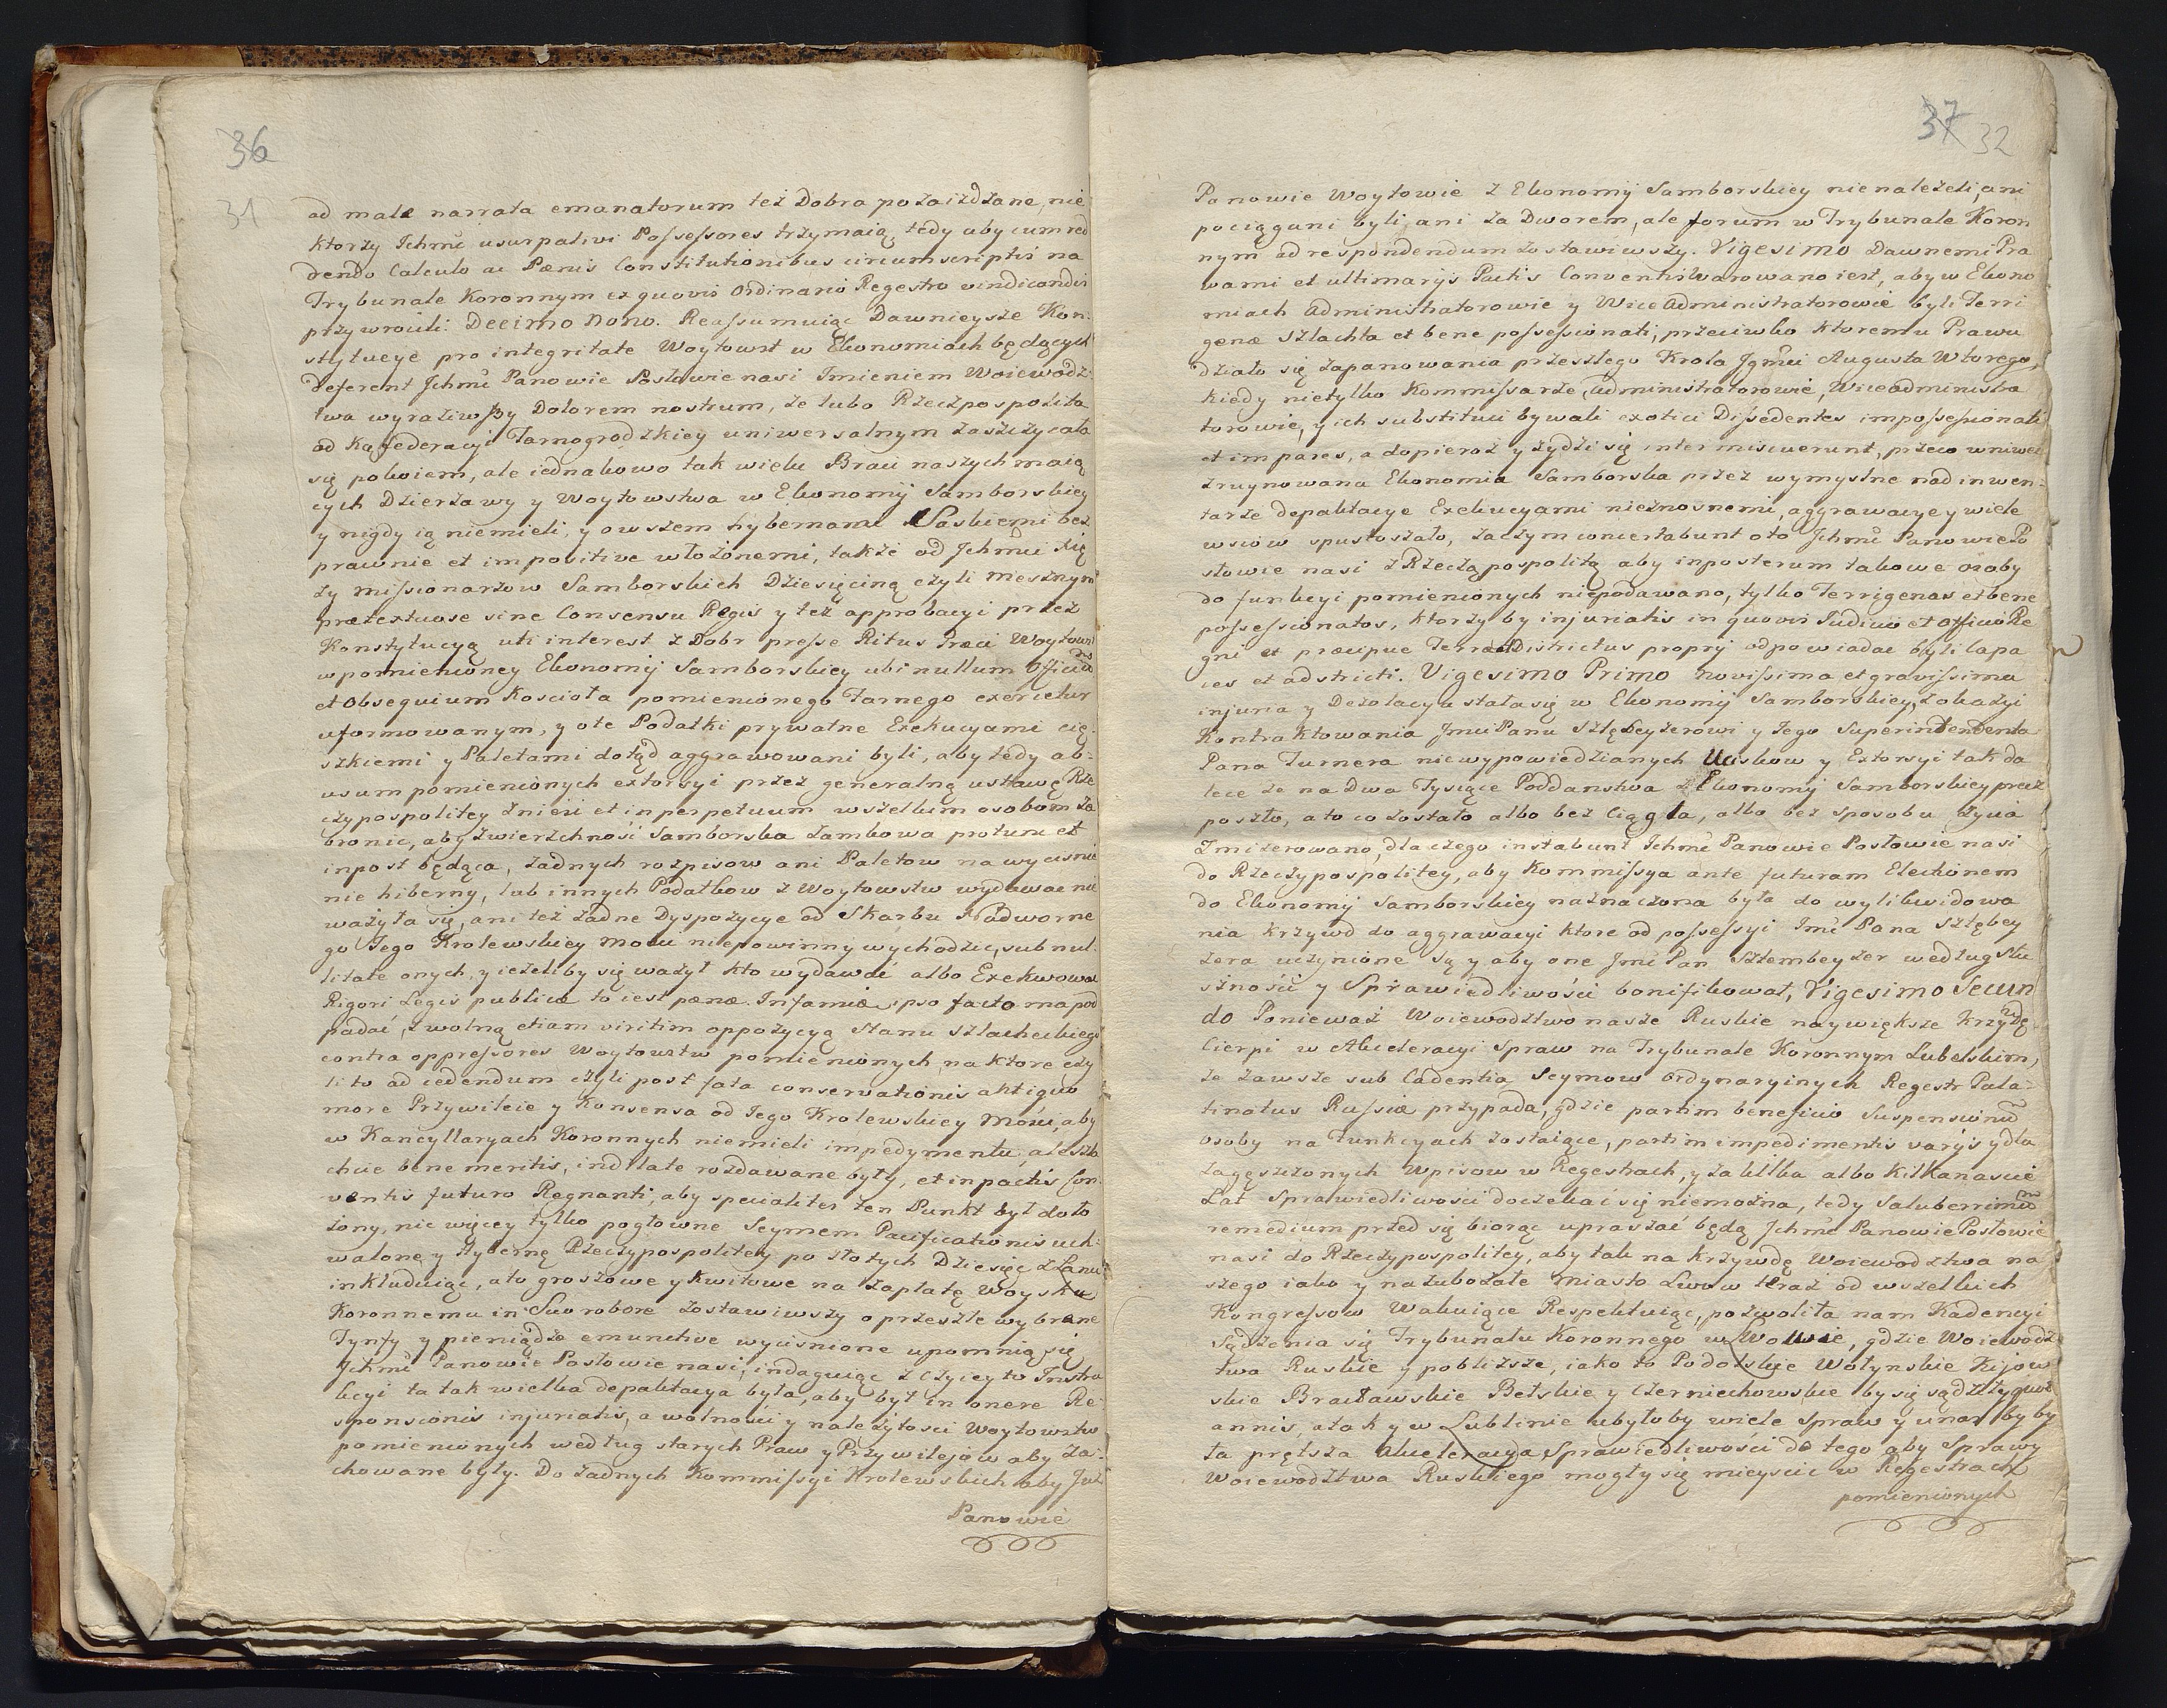 36
31
ad male narrata emanatorum też Dobra pozaizdzane, nie
ktorzy Ichmć usurpativi Possessores trzymaią, tedy aby cum red
dendo Calculo ac Pœnis Constitutionibus circumscriptis na
Trybunale Koronnym ex quovis Ordinario Regestro vindicandis
przywrocili. Decimo Nono. Reassumuiąc Dawnieysze Kon-
stytucye pro integritate Woytowst w Ekonomiach będących
deferent Ichmć Panowie Posłowie nasi Imieniem Woiewodz-
twa wyraziwszy Dolorem nostrum, że lubo Rzeczpospolita
od Kąfederacyi Tarnogrodzkiey uniwersalnym zaszczycała
się pokoiem, ale iednakowo tak wielu Braci naszych maią
cych Dzierzawy y Woytowstwa w Ekonomij Samborskiey
y nigdy ią niemieli, y owszem hybernami Saskiemi bez
prawnie et impositive włożonemi, także od Ichmci Xię
ży Missionarzow Samborskich Dziesięciną czyli Mesznym
prætextuose sine Consensu Regis y też approbacyi przez
Konstytucyą uti interest z Dobr presse Ritus Græci Woytowst
w pomienioney Ekonomij Samborskiey ubi nullum Officium
et Obsequium Kosciota pomienionego Farnego exercetur
uformowanym, y ote Podatki prywatne Exekucyami cię-
szkiemi y Paletami dotąd aggrawowani byli, aby tedy ab-
usum pomienionych extorsyi przez generalną ustawę Rze
czypospolitey znieśi et inperpetuum wszelkim osobom za
bronić, aby zwierzchność Samborska Zamkowa pro tunc et
inpost będąca, żadnych rozpisow ani Paletow na wyciśnie
nie hiberny, lub innych Podatkow z Woytowstw wydawac nie
ważyła się, ani też żadne Dyspozycye od Skarbu Nadworne
go Jego Krolewskiey Mości niepowinny wychodzic, sub nul-
litate onych, y ieżeliby się ważył kto wydawać albo Exekwować
Rigori Legis publicæ to iest pœnæ Infamiæ ipso facto ma pod
padać, z wolną etiam viritim oppozycyą Stanu Szlacheckiego
contra oppressores Woytowstw pomienionych, na ktore czy
li to ad cedendum czyli post fata conservationis antiquo
more Przywileie y Konsensa od Jego Krolewskiey Mości, aby
w Kancyllaryach Koronnych niemieli impedymentu, ale szla
chcie bene meritis, indilate rozdawane były, et in pactis Con-
ventis futuro Regnanti, aby specialiter ten Punkt był doło
żony, nie więcey tylko pogłowne Seymem Pacificationis uch-
walone, y Hybernę Rzeczypospolitey po złotych Dziesięć z Łanu
inkluduiąc, a to groszowe y kwitowe na zapłatę Woysku
Koronnemu in Suo robore zostawiwszy o przeszłe wybrane
Tynfy y pieniądze emunctive wyciśnione upomnią się
Ichmć Panowie Posłowie nasi, indaguiąc z czyiey to Instru
kcyi ta tak wielka depaktacya była, aby był in onere Re-
sponsionis injuriatis, a wolności y należytosci Woytowstw
pomienionych według starych Praw y Przywilejow aby za-
chowane były. Do żadnych Kommissyi Krolewskich aby Ichć
Panowie
37 32
Panowie Woytowie z Ekonomij Samborskiey nienależeli, ani
pociągani byli, ani za Dworem, ale forum w Trybunale Koron
nym ad respondendum zostawiwszy. Vigesimo Dawnemi Pra
wami et ultimarijs Pactis Conventis Warowano iest, aby w Ekono
miach Administratorowie y Wice Administratorowie byli Terri
genæ Szlachta et bene possessionati, przeciwko ktoremu Prawu
działo się zapanowania przeszłego Krola Jgmci Augusta Wtorego,
kiedy nietylko Kommissarze, Administratorowie, Wiceadministra
torowie, y ich substituci bywali exotici Dissedentes impossessionati
et impares, a dopieroż y żydzi się intermiscuerunt, przeco wniwec
zruynowana Ekonomia Samborska przez wymyslne nad inwen-
tarze depaktacye Exekucyami nieznosnemi, aggrawacye y wiele
wsiow spustoszało, zaczym concertabunt oto Ichmć Panowie Po
słowie nasi z Rzecząpospolitą aby inposterum takowe osoby
do funkcyi pomienionych niepodawano, tylko Terrigenas et bene
possessionatos, ktorzy by injuriatis in quovis Judicio et Officio Re
gni et præcipue Terræ Districtus proprij odpowiadac byli capa
ces et adstricti. Vigesimo Primo novissima et gravissima
injuria y Dezolacya stała się w Ekonomij Samborskiey, z okazyi
Kontraktowania Jmci Panu Sztębeyzerowi y Jego Superindendenta
Pana Turnera niewypowiedzianych Uciskow y Extorsyi tak da
lece że na Dwa Tysiące Poddanstwa z Ekonomij Samborskiey precz
poszło, a to co zostało albo bez ciągła, albo bez sposobu życia
Zmizerowano, dlaczego instabunt Ichmć Panowie Posłowie nasi
do Rzeczypospolitey, aby Kommissya ante futuram Electionem
do Ekonomij Samborskiey naznaczona była do wylikwidowa
nia krzywd do aggrawacyi ktore od possessyi Jmć Pana Sztębey
zera uczynione są y aby one Jmć Pan Sztembeyzer według Słu
szności y Sprawiedliwości bonifikował, Vigesimo Secun
do Ponieważ Woiewodztwo nasze Ruskie naywiększe krzywdę
Cierpi w Akceleracyi Spraw na Trybunale Koronnym Lubelskim,
że zawsze sub Cadentia Seymow Ordynaryinych Regestr Pala-
tinatus Russiæ przypada, gdzie partim beneficio Suspensionum
osoby na Funkcyach zostaiące, partim impedimentis varijs y dla
zagęszczonych Wpisow w Regestrach, y za kilka albo kilkanascie
Lat Sprawiedliwości doczekać się niemożna, tedy Saluberrimum
remedium przed się biorąc upraszać będą Ichmć Panowie Posłowie
nasi do Rzeczypospolitey, aby tak na krzywdę Woiewodztwa na
szego iako y na zubożałe Miasto Lwow teraz od wszelkich
Kongressow Wakuiące Respektuiąc, pozwoliła nam Kadencyi
Sądzenia się Trybunału Koronnego w Lwowie, gdzie Woiewodz
twa Ruskie y pobliższe, iako to Podolskie Wołynskie Kijow
skie Bracławskie Bełskie y Czerniechowskie by się sądziły quot
annis, a tak y w Lublinie ubyłoby wiele Spraw y unas by by
ła prętsza Akceleracya Sprawiedliwości do tego aby Sprawy
Woiewodztwa Ruskiego mogły się mieyscic w Regestrach
pomienionych